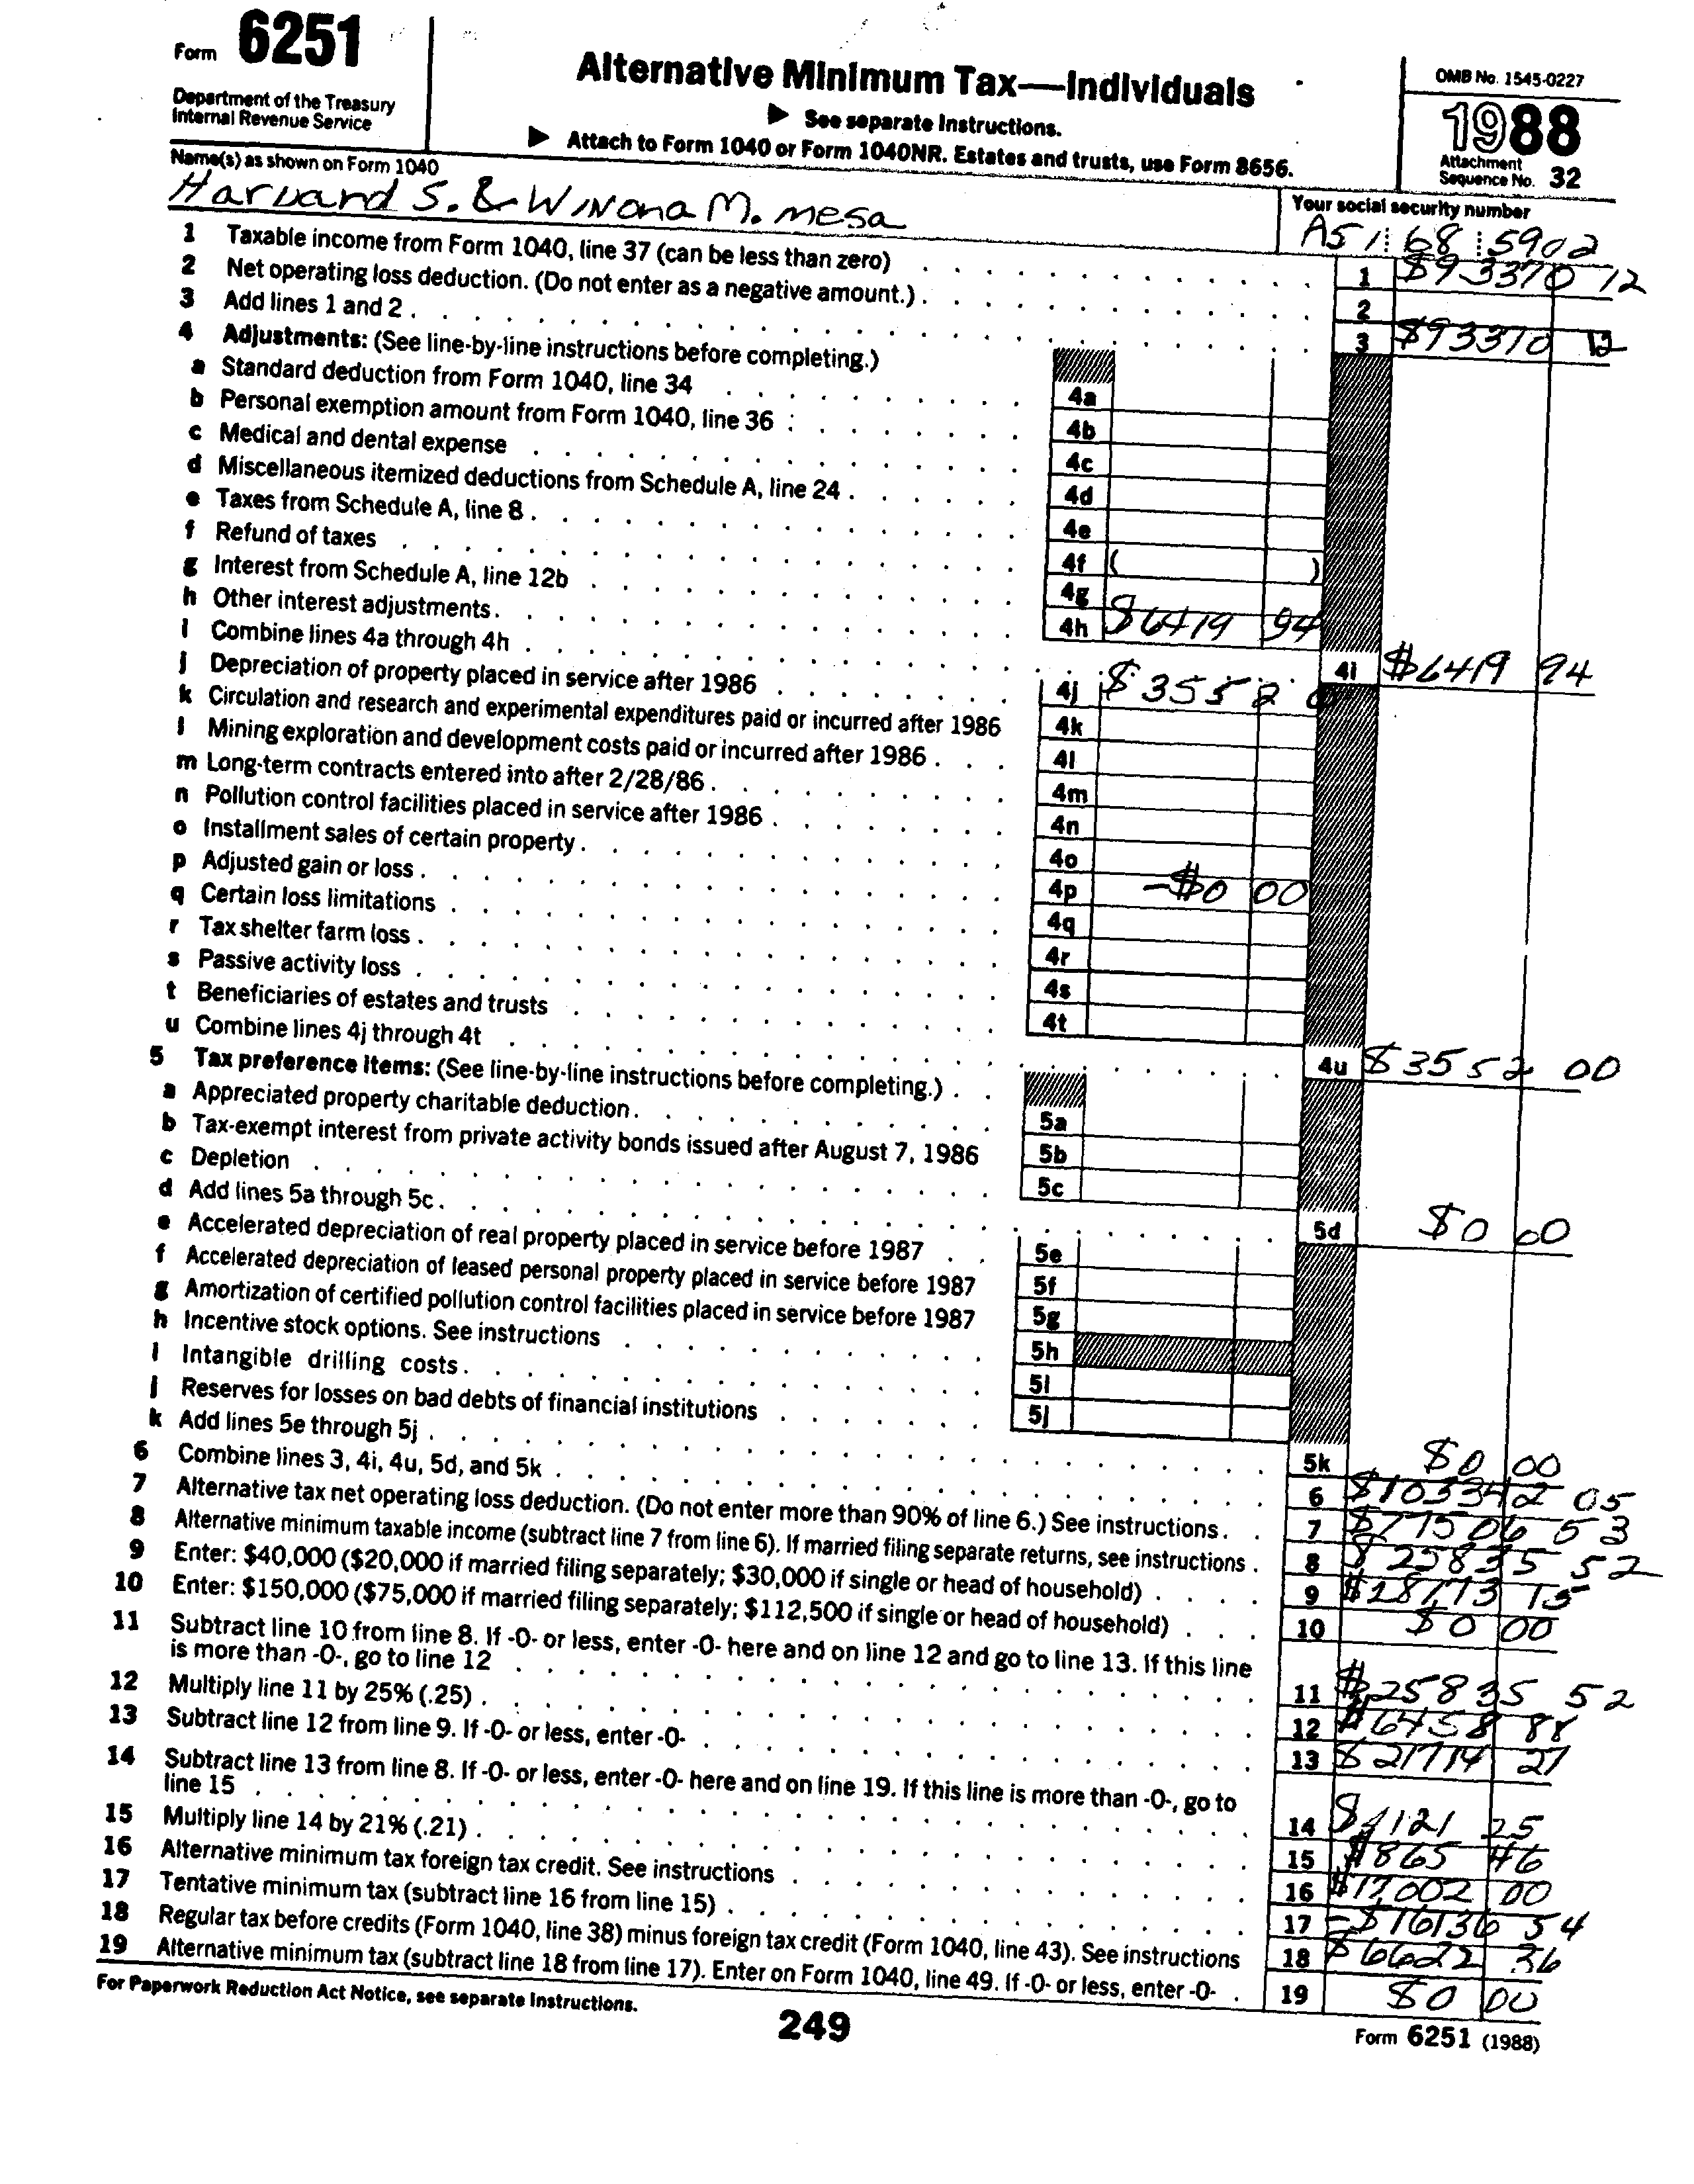 Form 6251
Department of the Treasury
Internal Revenue Service
Alternative Minimum Tax—Individuals
▶ See separate Instructions.
▶ Attach to Form 1040 or Form 1040NR. Estates and trusts, use Form 8656.
OMB No. 1545-0227
1988
Attachment
Sequence No. 32
Name(s) as shown on Form 1040
Harvard S. & Winona M. mesa
Your social security number
A51 68 5902
1 Taxable income from Form 1040, line 37 (can be less than zero) 1 $93370 12
2 Net operating loss deduction. (Do not enter as a negative amount.) 2
3 Add lines 1 and 2 3 $93370 12
4 Adjustments: (See line-by-line instructions before completing.)
a Standard deduction from Form 1040, line 34 4a
b Personal exemption amount from Form 1040, line 36 4b
c Medical and dental expense 4c
d Miscellaneous itemized deductions from Schedule A, line 24 4d
e Taxes from Schedule A, line 8 4e
f Refund of taxes 4f ( )
g Interest from Schedule A, line 12b 4g
h Other interest adjustments 4h $6419 94
i Combine lines 4a through 4h 4i $6419 94
j Depreciation of property placed in service after 1986 4j $3552 0
k Circulation and research and experimental expenditures paid or incurred after 1986 4k
l Mining exploration and development costs paid or incurred after 1986 4l
m Long-term contracts entered into after 2/28/86 4m
n Pollution control facilities placed in service after 1986 4n
o Installment sales of certain property 4o
p Adjusted gain or loss 4p -$0 00
q Certain loss limitations 4q
r Tax shelter farm loss 4r
s Passive activity loss 4s
t Beneficiaries of estates and trusts 4t
u Combine lines 4j through 4t 4u $3552 00
5 Tax preference items: (See line-by-line instructions before completing.)
a Appreciated property charitable deduction 5a
b Tax-exempt interest from private activity bonds issued after August 7, 1986 5b
c Depletion 5c
d Add lines 5a through 5c 5d $0 00
e Accelerated depreciation of real property placed in service before 1987 5e
f Accelerated depreciation of leased personal property placed in service before 1987 5f
g Amortization of certified pollution control facilities placed in service before 1987 5g
h Incentive stock options. See instructions 5h
i Intangible drilling costs 5i
j Reserves for losses on bad debts of financial institutions 5j
k Add lines 5e through 5j 5k $0 00
6 Combine lines 3, 4i, 4u, 5d, and 5k 6 $103342 05
7 Alternative tax net operating loss deduction. (Do not enter more than 90% of line 6.) See instructions 7 $77506 53
8 Alternative minimum taxable income (subtract line 7 from line 6). If married filing separate returns, see instructions 8 $25835 52
9 Enter: $40,000 ($20,000 if married filing separately; $30,000 if single or head of household) 9 $28173 15
10 Enter: $150,000 ($75,000 if married filing separately; $112,500 if single or head of household) 10 $0 00
11 Subtract line 10 from line 8. If -0- or less, enter -0- here and on line 12 and go to line 13. If this line
is more than -0-, go to line 12 11 $25835 52
12 Multiply line 11 by 25% (.25) 12 $6458 88
13 Subtract line 12 from line 9. If -0- or less, enter -0- 13 $21714 27
14 Subtract line 13 from line 8. If -0- or less, enter -0- here and on line 19. If this line is more than -0-, go to
line 15 14 $4121 25
15 Multiply line 14 by 21% (.21) 15 $865 46
16 Alternative minimum tax foreign tax credit. See instructions 16 $17,002 00
17 Tentative minimum tax (subtract line 16 from line 15) 17 -$16136 54
18 Regular tax before credits (Form 1040, line 38) minus foreign tax credit (Form 1040, line 43). See instructions 18 $6622 36
19 Alternative minimum tax (subtract line 18 from line 17). Enter on Form 1040, line 49. If -0- or less, enter -0- 19 $0 00
For Paperwork Reduction Act Notice, see separate Instructions.
249
Form 6251 (1988)